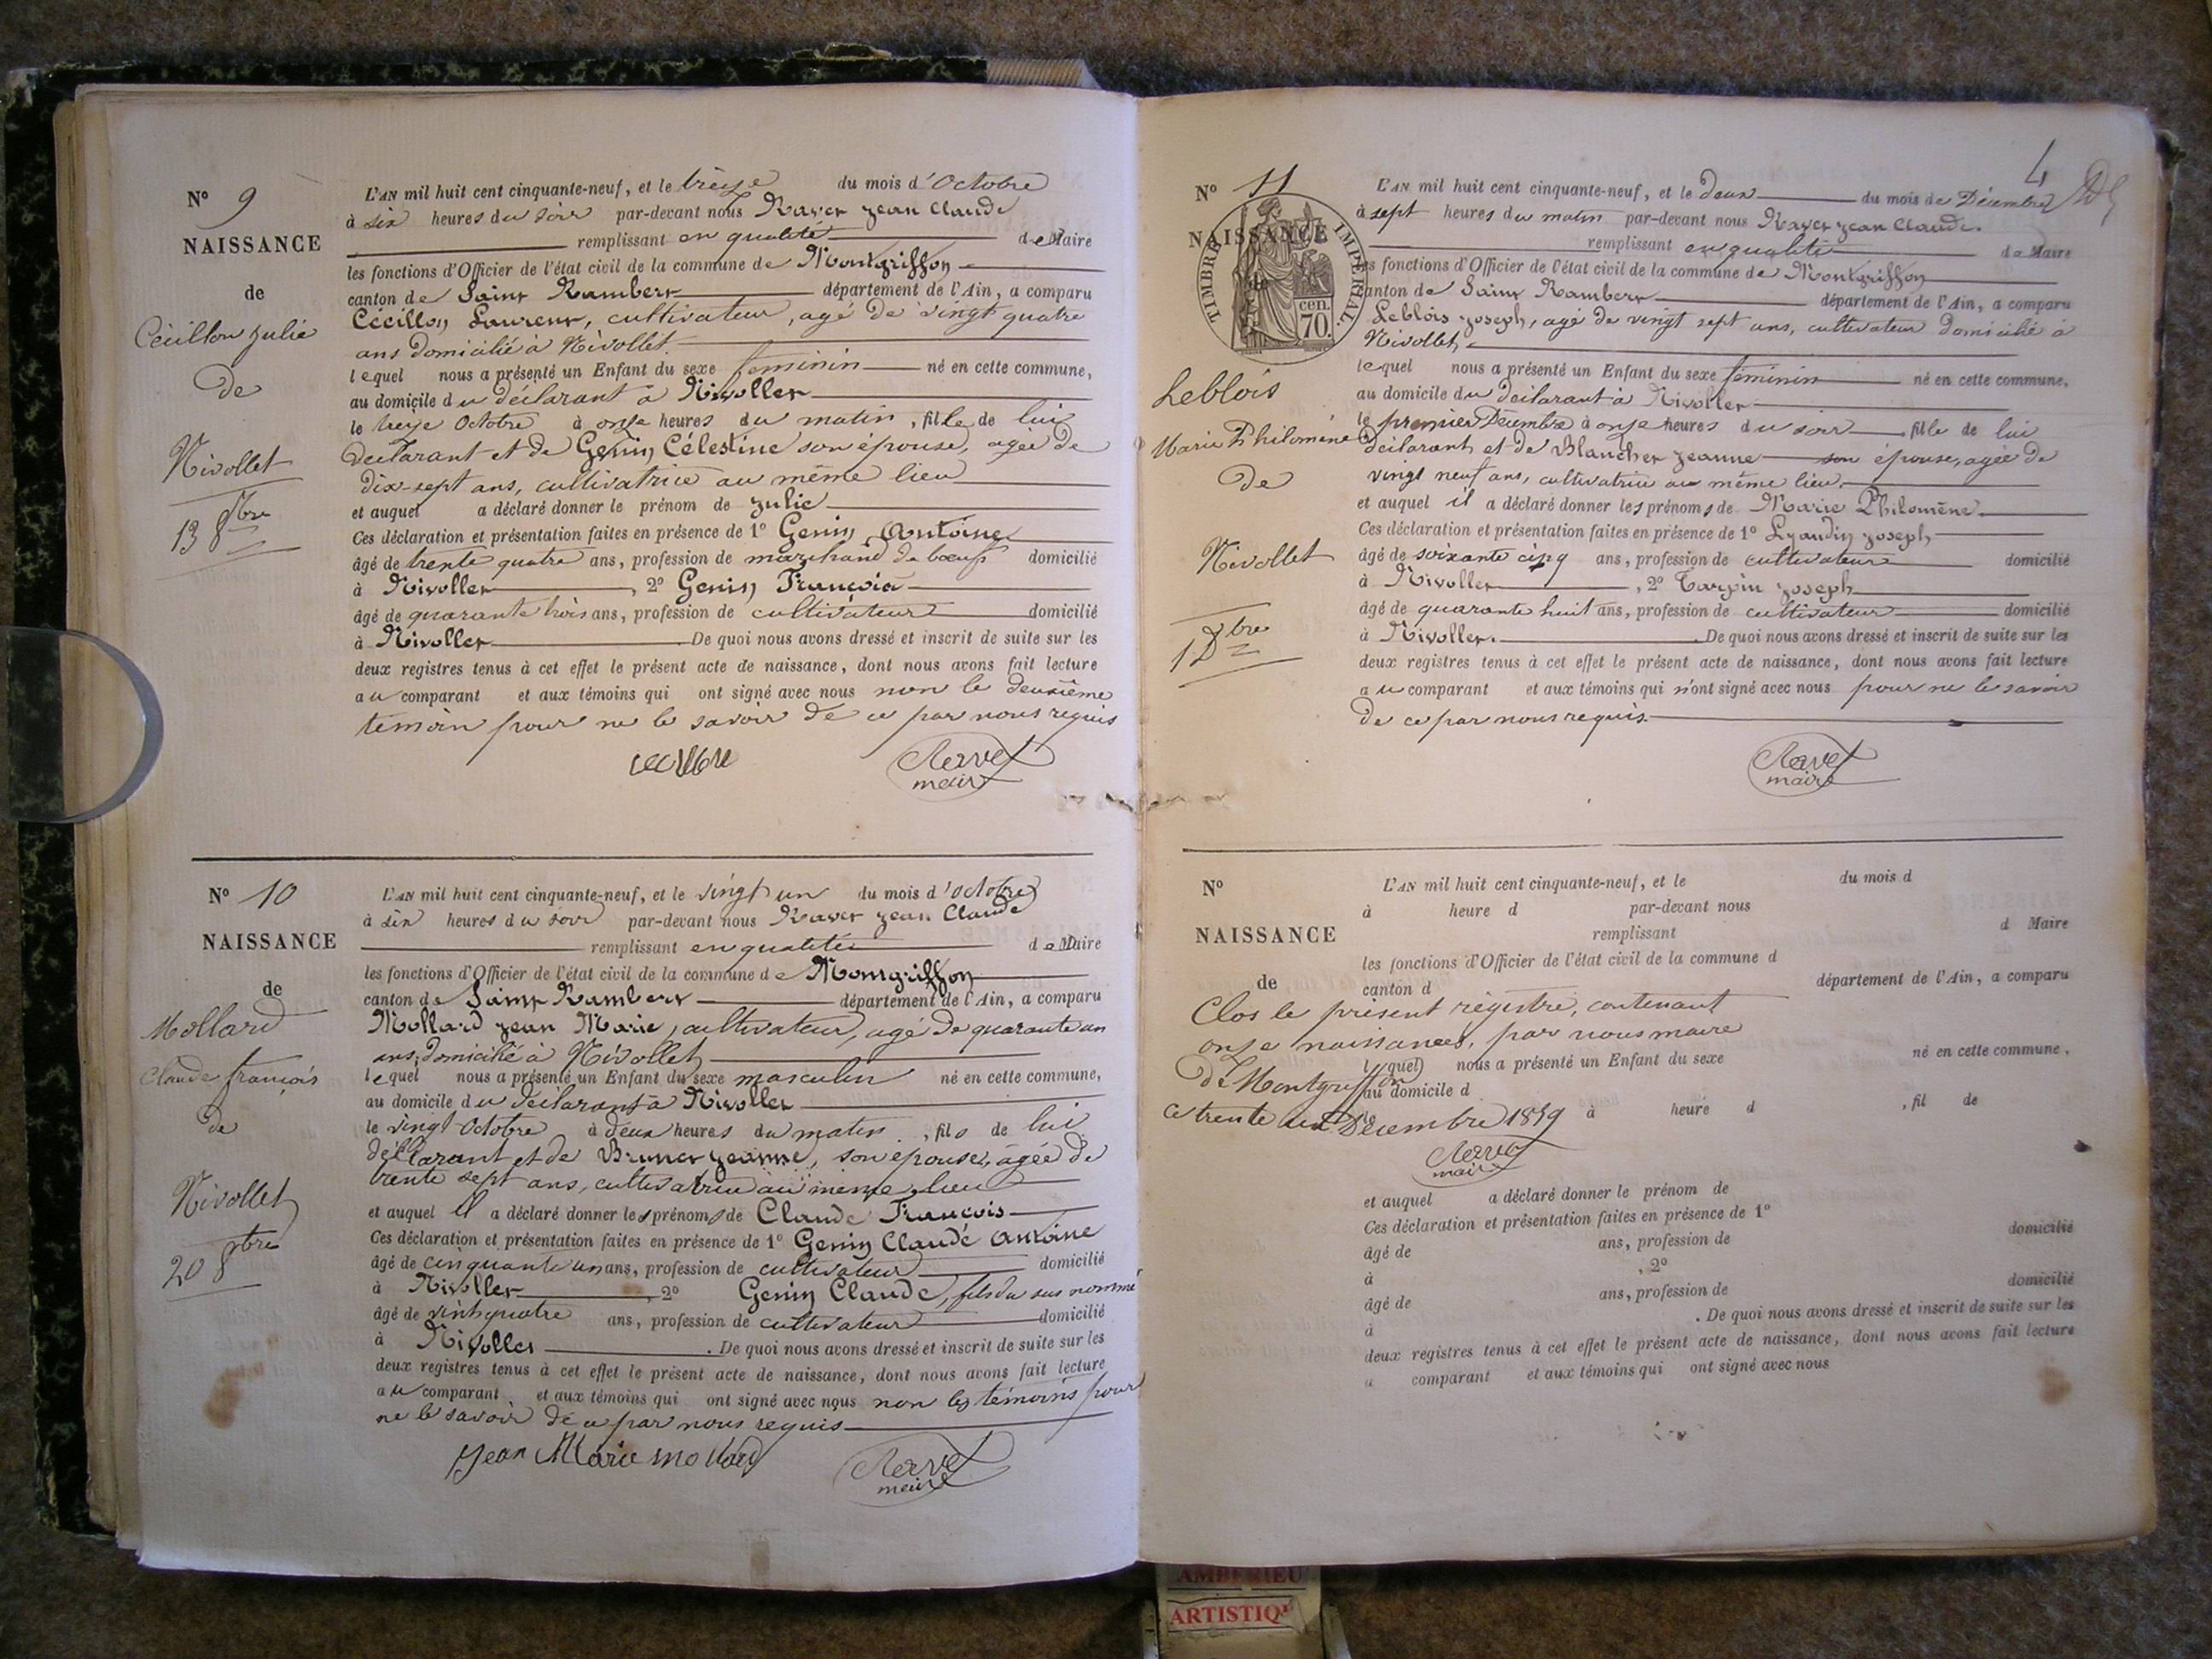 N° 9
NAISSANCE
de
Cécillon Julie
de
Nivollet
13 8bre
L'AN mil huit cent cinquante-neuf, et le treize du mois d'Octobre
à six heures du soir par-devant nous Ravet Jean Claude
remplissant en qualité de Maire
les fonctions d'Officier de l'état civil de la commune de Montgriffon
canton de Saint Rambert département de l'Ain, a comparu
Cécillon Laurent, cultivateur, agé de vingt quatre
ans domicilié à Nivollet.
lequel nous a présenté un Enfant du sexe feminin né en cette commune,
au domicile du déclarant à Nivollet
le treize Octobre à onze heures du matin, fille de lui
déclarant et de Genin Célestine son épouse, agée de
dix-sept ans, cultivatrice au même lieu
et auquel a déclaré donner le prénom de Julie
Ces déclaration et présentation faites en présence de 1° Genin Antoine
âgé de trente quatre ans, profession de marchand de bœufs domicilié
à Nivollet, 2° Genin François
âgé de quarante trois ans, profession de cultivateur domicilié
à Nivollet. De quoi nous avons dressé et inscrit de suite sur les
deux registres tenus à cet effet le présent acte de naissance, dont nous avons fait lecture
au comparant et aux témoins qui ont signé avec nous non le deuxième
témoin pour ne le savoir de ce par nous requis
Ravet
maire
N° 10
NAISSANCE
de
Mollard
Claude françois
de
Nivollet
20 8bre
L'AN mil huit cent cinquante-neuf, et le vingt un du mois d'octobre
à six heures du soir par-devant nous Ravet Jean Claude
remplissant en qualité de Maire
les fonctions d'Officier de l'état civil de la commune de Montgriffon
canton de Saint Rambert département de l'Ain, a comparu
Mollard Jean Marie, cultivateur, agé de quarante un
ans, domicilié à Nivollet
lequel nous a présenté un Enfant du sexe masculin né en cette commune,
au domicile du déclarant à Nivollet
le vingt Octobre à deux heures du matin, fils de lui
déclarant et de Brunet Jeanne, son épouse, agée de
trente sept ans, cultivatrice au même lieu
et auquel il a déclaré donner les prénoms de Claude François
Ces déclaration et présentation faites en présence de 1° Genin Claude Antoine
âgé de cinquante un ans, profession de cultivateur domicilié
à Nivollet, 2° Genin Claude, fils du sus nommé
âgé de vint quatre ans, profession de cultivateur domicilié
à Nivollet. De quoi nous avons dressé et inscrit de suite sur les
deux registres tenus à cet effet le présent acte de naissance, dont nous avons fait lecture
au comparant et aux témoins qui ont signé avec nous non les témoins pour
ne le savoir de ce par nous requis
Jean Marie mollard
Ravet
maire
4
N° 11
NAISSANCE
de
TIMBRE IMPÉRIAL.
70 cen.
Leblois
Marie Philomène
de
Nivollet
1 Xbre
L'AN mil huit cent cinquante-neuf, et le deux du mois de Décembre
à sept heures du matin par-devant nous Ravet Jean Claude.
remplissant en qualité de Maire
les fonctions d'Officier de l'état civil de la commune de Montgriffon
canton de Saint Rambert département de l'Ain, a comparu
Leblois Joseph, agé de vingt sept ans, cultivateur domicilié à
Nivollet,
lequel nous a présenté un Enfant du sexe féminin né en cette commune,
au domicile du déclarant à Nivollet
le premier Décembre à onze heures du soir fille de lui
déclarant et de Blanchet Jeanne son épouse, agée de
vingt neuf ans, cultivatrice au même lieu,
et auquel il a déclaré donner les prénoms de Marie Philomène.
Ces déclaration et présentation faites en présence de 1° Lyaudin Joseph
âgé de soixante cinq ans, profession de cultivateur domicilié
à Nivollet, 2° Tarpin Joseph
âgé de quarante huit ans, profession de cultivateur domicilié
à Nivollet. De quoi nous avons dressé et inscrit de suite sur les
deux registres tenus à cet effet le présent acte de naissance, dont nous avons fait lecture
au comparant et aux témoins qui n'ont signé avec nous pour ne le savoir
de ce par nous requis.
Ravet
maire
N°
NAISSANCE
de
L'AN mil huit cent cinquante-neuf, et le du mois d
à heure d par-devant nous
remplissant d Maire
les fonctions d'Officier de l'état civil de la commune d
canton d département de l'Ain, a comparu
Clos le présent régistre, contenant
onze naissances, par nous maire
lequel nous a présenté un Enfant du sexe né en cette commune,
de Montgriffon
au domicile d
ce trente un Décembre 1859
le à heure d , fil de
Ravet
maire
et auquel a déclaré donner le prénom de
Ces déclaration et présentation faites en présence de 1°
âgé de ans, profession de domicilié
à , 2°
âgé de ans, profession de domicilié
à . De quoi nous avons dressé et inscrit de suite sur les
deux registres tenus à cet effet le présent acte de naissance, dont nous avons fait lecture
a comparant et aux témoins qui ont signé avec nous
AMBERIEU
ARTISTIQ